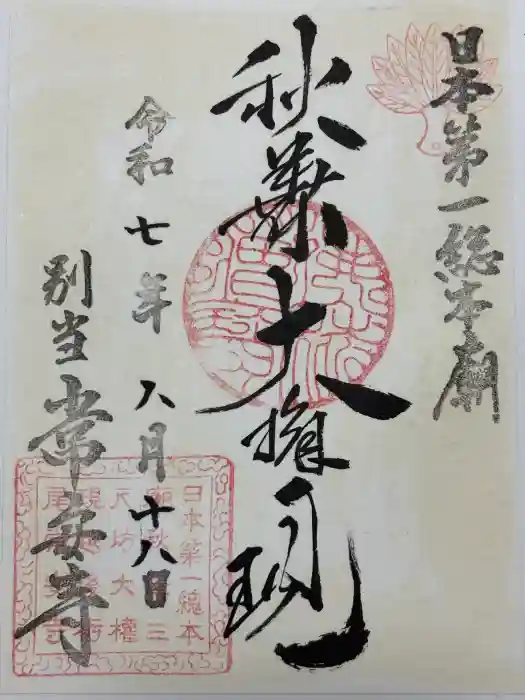 日本第一総本廟
秋葉大権現
令和七年八月十八日
別当常安寺
日本第一総本
廟秋葉三
尺坊大権
現越後